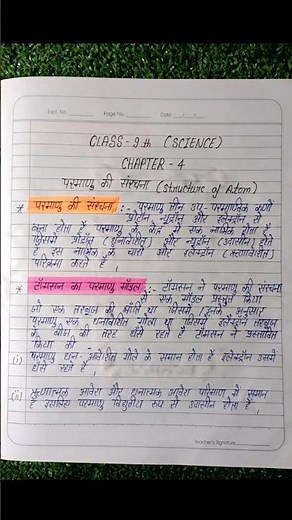 Expt. No.
Page No.
Date
CLASS - 9th (SCIENCE)
CHAPTER - 4
परमाणु की संरचना (Structure of Atom)
* परमाणु की संरचना :- परमाणु तीन उप-परमाणविक कणों
प्रोटॉन, न्यूट्रॉन और इलेक्ट्रॉन से
बना होता है। परमाणु के केंद्र में एक नाभिक होता है
जिसमें प्रोटॉन (धनावेशित) और न्यूट्रॉन (उदासीन) होते
है इस नाभिक के चारों और इलेक्ट्रॉन (ऋणावेशित)
परिक्रमा करते हैं।
* टॉमसन का परमाणु मॉडल :- टॉमसन ने परमाणु की संरचना
से एक मॉडल प्रस्तुत किया
जो एक तरबूज की भाँति था जिसमें, इनके अनुसार
परमाणु एक धनावेशित गोला था जिसमें इलेक्ट्रॉन तरबूज
के बीज की तरह धँसे रहते हैं टॉमसन ने प्रस्तावित
किया की
(i) परमाणु धन-आवेशित गोले के समान होता है इलेक्ट्रॉन उसमें
धँसे रहते हैं।
(ii) ऋणात्मक आवेश और धनात्मक आवेश परिमाण में समान
है इसलिए परमाणु विद्युतीय रूप से उदासीन होता है।
Teacher's Signature